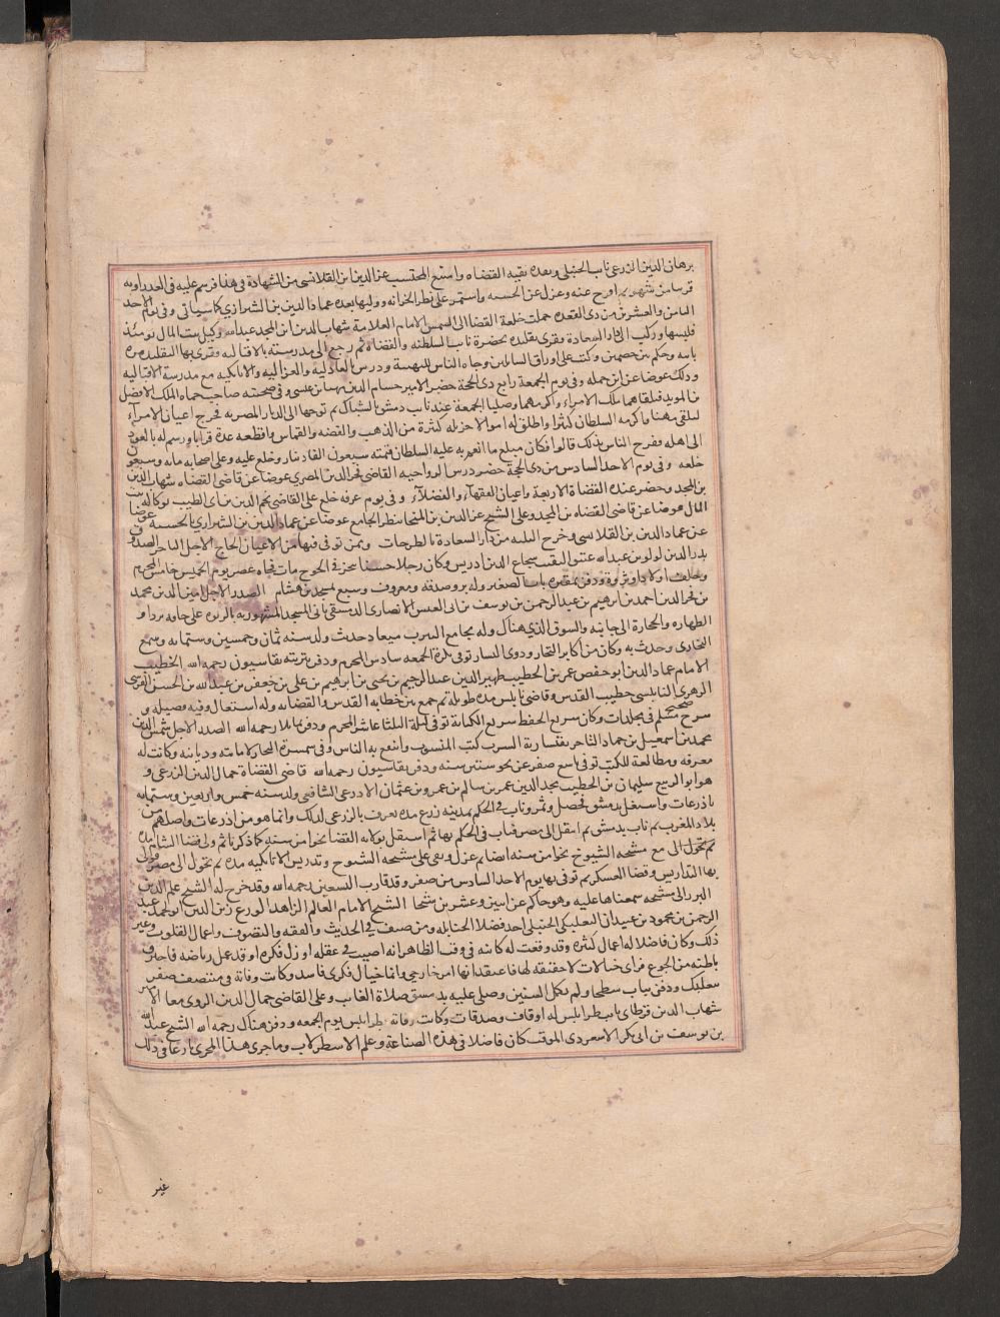 برهان الدين الزرعي نايب الحنبلي وبعده بقيه القضاه وامتنع المحتسب عز الدين ابن القلانسي من الشهادة في هذا فرسم عليه في العدراويه
قريبا من شهر ثم افرج عنه وعزل عن الحسبه واستمر على نظر الخزانه ووليها بعده عماد الدين بن الشيرازي كما سياتي وفي يوم الاحد
الثامن والعشرين من ذي القعده حملت خلعة القضا الى الشمس الامام العلامة شهاب الدين ابن المجد عبد الله وكيل بيت المال يومئذ
فلبسها وركب الى دار السعادة وقري تقليده بحضرة نايب السلطنه والقضاه ثم رجع الى مدرسته الاقباليه وقري بها التقليد مره
ثانيه وحكم بين خصمين وكتب على اوراق السايلين وجاه الناس للتهنية ودرس بالعادليه والغزاليه والاتابكيه مع مدرسة الاقباليه
وذلك عوضا عن ابن جمله وفي يوم الجمعة رابع ذي الحجة حضر الامير حسام الدين مهنا بن عيسى وفي صحبته صاحب حماه الملك الافضل
بن المويد فتلقاهما ملك الامراء واكرمهما وصليا الجمعة عند نايب دمشق بالشباك ثم توجها الى الديار المصريه فخرج اعيان الامراء
لتلقي مهنا فاكرمه السلطان كثيرا واطلق له اموالا جزيله كثيرة من الذهب والفضه والقماش واقطعه عدة قرايا ورسم له بالعود
الى اهله وفرح الناس بذلك قالوا فكان مبلغ ما انعم به عليه السلطان قيمته سبعون الف دينار وخلع عليه وعلى اصحابه مايه وسبعون
خلعه وفي يوم الاحد السادس من ذي الحجة حضر درس الرواحيه القاضي فخر الدين المصري عوضا عن قاضي القضاه شهاب الدين
بن المجد وحضر عنده القضاة الاربعة واعيان الفقهآء والفضلآء وفي يوم عرفه خلع على القاضي نجم الدين بن ابي الطيب بوكالة بيت
المال عوضا عن قاضي القضاه بن المجد وعلى الشيخ عز الدين بن المنجا بنظر الجامع عوضا عن عماد الدين بن الشيرازي بالحسبه عوضا
عن عماد الدين بن القلانسي وخرج الثلثه من دار السعادة بالطرحات وممن توفي فيها من الاعيان الحاج الاجل التاجر الصدوق
بدر الدين لولو بن عبد الله عتيق النقيب شجاع الدين ادريس وكان رجلا حسنا يتجر في الجوخ مات فجاه عصر يوم الخميس خامس المحرم
وخلف اولادا وثروة ودفن بمقبرة باب الصغير وله بر وصدقه ومعروف وسبع بمسجد بن هشام الصدر الاجل امين الدين محمد
بن فخر الدين احمد بن ابرهيم بن عبد الرحمن بن يوسف بن ابي العيش الانصاري الدمشقي باني المسجد المشهور به بالربوه على حافه بردا و
الطهاره والحجارة الى جانبه والسوق الذي هناك وله بجامع النيرب ميعاد حديث ولد سنه ثمان وخمسين وستمايه وسمع
البخاري وحدث به وكان من اكابر التجار وذوي اليسار توفي بكرة الجمعه سادس المحرم ودفن بتربته بقاسيون رحمه الله الخطيب
الامام عماد الدين ابو حفص عمر بن الخطيب ظهير الدين عبد الرحيم بن يحيى بن ابرهيم بن علي بن جعفر بن عبد الله بن الحسن القرشي
الزهري النابلسي خطيب القدس وقاضي نابلس مدة طويلة ثم جمع بين خطابه القدس والقضا به وله اشتغال وفيه فضيله و
شرح صحيح مسلم في مجلدات وكان سريع الحفظ سريع الكتابة توفي ليلة الثلثا عاشر المحرم ودفن بماملا رحمه الله الصدر الاجل شمس الدين
محمد بن اسمعيل بن حماد التاجر بقيساريه الشرب كتب المنسوب وانتفع به الناس وفي سمسرة التجار لامانته وديانته وكانت له
معرفه ومطالعة للكتب توفي تاسع صفر عن نحو ستين سنه ودفن بقاسيون رحمه الله قاضي القضاة جمال الدين الزرعي و
هو ابو الربيع سليمان بن الخطيب مجد الدين عمر بن سالم بن عمرو بن عثمان الاذرعي الشافعي ولد سنه خمس واربعين وستمايه
باذرعات واشتغل بدمشق فحصل وثمر وناب في الحكم بمدينه زرع مده فعرف بالزرعي لذلك وانما هو من اذرعات واصلهم من
بلاد المغرب ثم ناب بدمشق ثم انتقل الى مصر فناب في الحكم بها ثم استقل بولايه القضا نحوا من سنه كما ذكرنا ثم ولي قضا الشام مدة
مع مشيخه الشيوخ نحوا من سنه ايضا ثم عزل وبقي على مشيخه الشيوخ وتدريس الاتابكيه مدة ثم تحول الى مصر فولي
بها التداريس وقضا العسكر ثم توفي بها يوم الاحد السادس من صفر وقد قارب التسعين رحمه الله وقد خرج له الشيخ علم الدين
البرزالي مشيخه سمعناها عليه وهو حاكم عن اثنين وعشرين شيخا الشيخ الامام العالم الزاهد الورع زين الدين ابو محمد عبد
الرحمن بن محمود بن عبيدان البعلبكي الحنبلي احد فضلا الحنابله ومن صنف في الحديث والفقه والتصوف واعمال القلوب وغير
ذلك وكان فاضلا له اعمال كثيره وقد وقعت له كاينه في وقت الظاهر انه اصيب في عقله او زل فكره او قد عمل رياضه فاحترق
باطنه من الجوع فراى خيالات لا حقيقه لها فاعتقد انها امر خارجي وانما خيال فكري فاسد وكانت وفاته في منتصف صفر
ببعلبك ودفن بباب سطحا ولم يكمل الستين وصلي عليه بدمشق صلاة الغايب وعلى القاضي جمال الدين الزرعي معا الامير
شهاب الدين قرطاي نايب طرابلس له اوقاف وصدقات وكانت وفاته بطرابلس يوم الجمعه ودفن هناك رحمه الله الشيخ عبد الله
بن يوسف بن ابي بكر الاسعردي الموقت كان فاضلا في هذه الصناعة وعلم الاسطرلاب وما جرى هذا المجرى بارعا في ذلك
غير